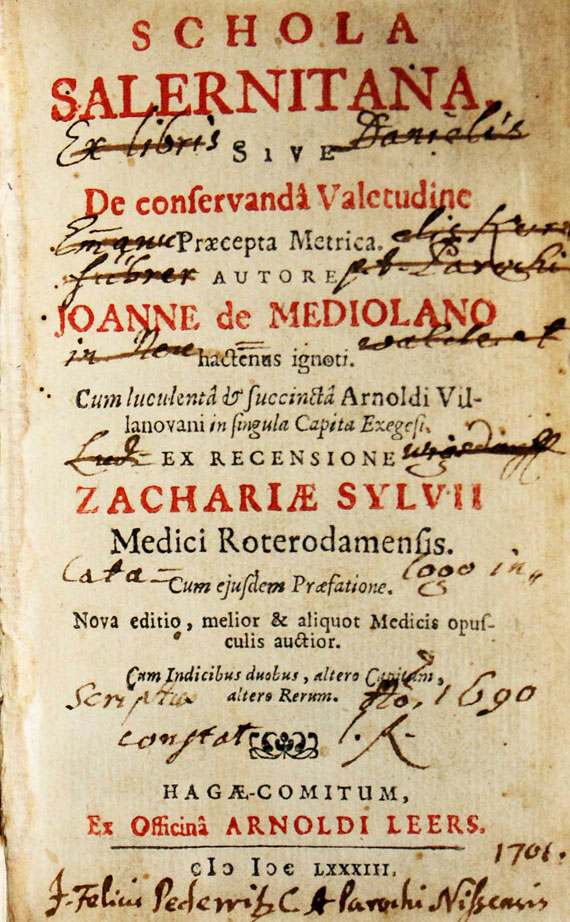 SCHOLA
SALERNITANA.
Ex libris SIVE Danielis
De conservandâ Valetudine
Præcepta Metrica.
AUTORE Parochi
JOANNE de MEDIOLANO
in hactenus ignoti.
Cum luculentâ & succinctâ Arnoldi Vil-
lanovani in singula Capita Exegesi.
EX RECENSIONE
ZACHARIÆ SYLVII
Medici Roterodamensis.
Cata= Cum ejusdem Præfatione. logo in„
Nova editio, melior & aliquot Medicis opus-
culis auctior.
Cum Indicibus duobus, altero Capitum,
Scriptus altero Rerum. 1690
constat
HAGÆ-COMITUM,
Ex Officinâ ARNOLDI LEERS.
cIɔ Iɔc LXXXIII. 1701.
Felicis Parochi Nissensis